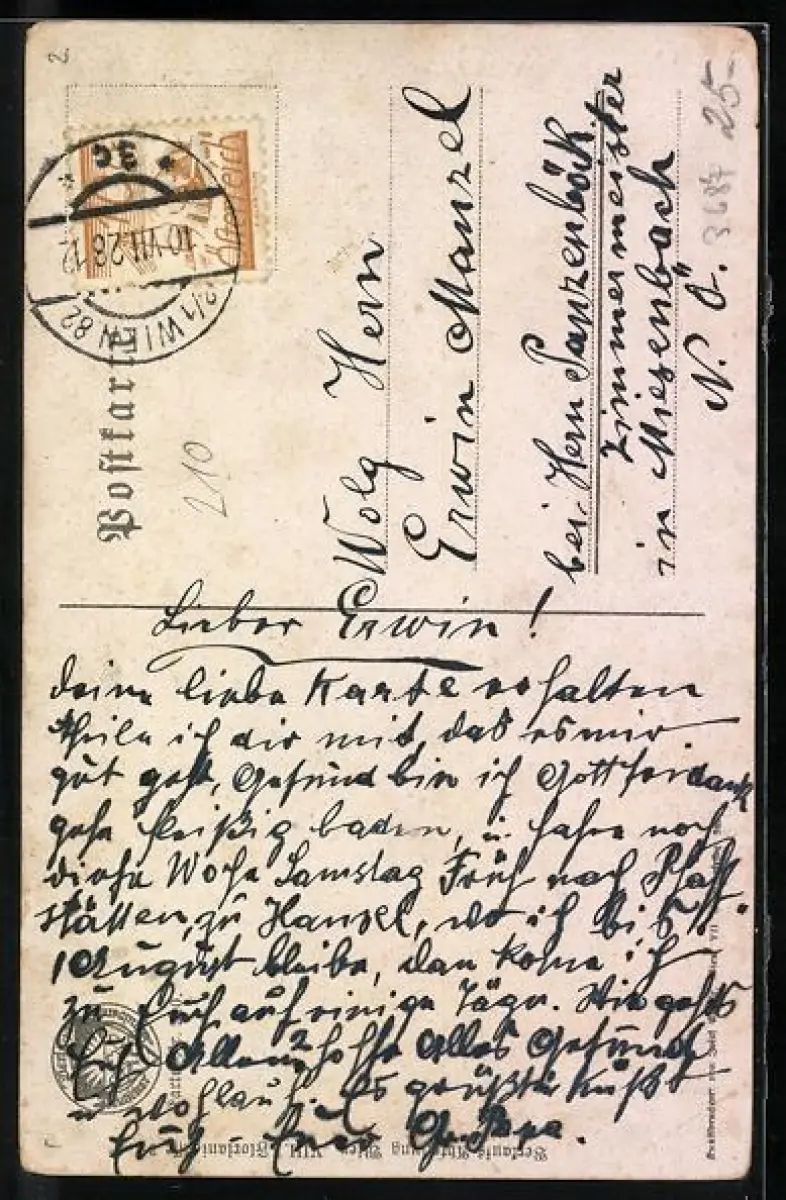 2
3687 25-
Postkarte
2/1 WIEN 82
10.VII.28.12
* 3c *
Österreich
210
Wolg Hern
Erwin Manzel
bei Hern Panzenböck
Zimmermeister
in Miesenbach
N. Ö.
Lieber Erwin!
deine liebe Karte erhalten
theile ich dir mit, das es mir
gut geht, Gesund bin ich Gott sei dank
gehe fleißig baden, u. fahre noch
diese Woche Samstag Früh nach Pfaff
stätten, zu Hansel, wo ich bis
1 August bleibe, dan kome ich
zu Euch auf einige Täge. Wie gehts
Euch Allen? hoffe Alles Gesund
u wohlauf. Es grüßt u küßt
Euch Euer Gr. Papa.